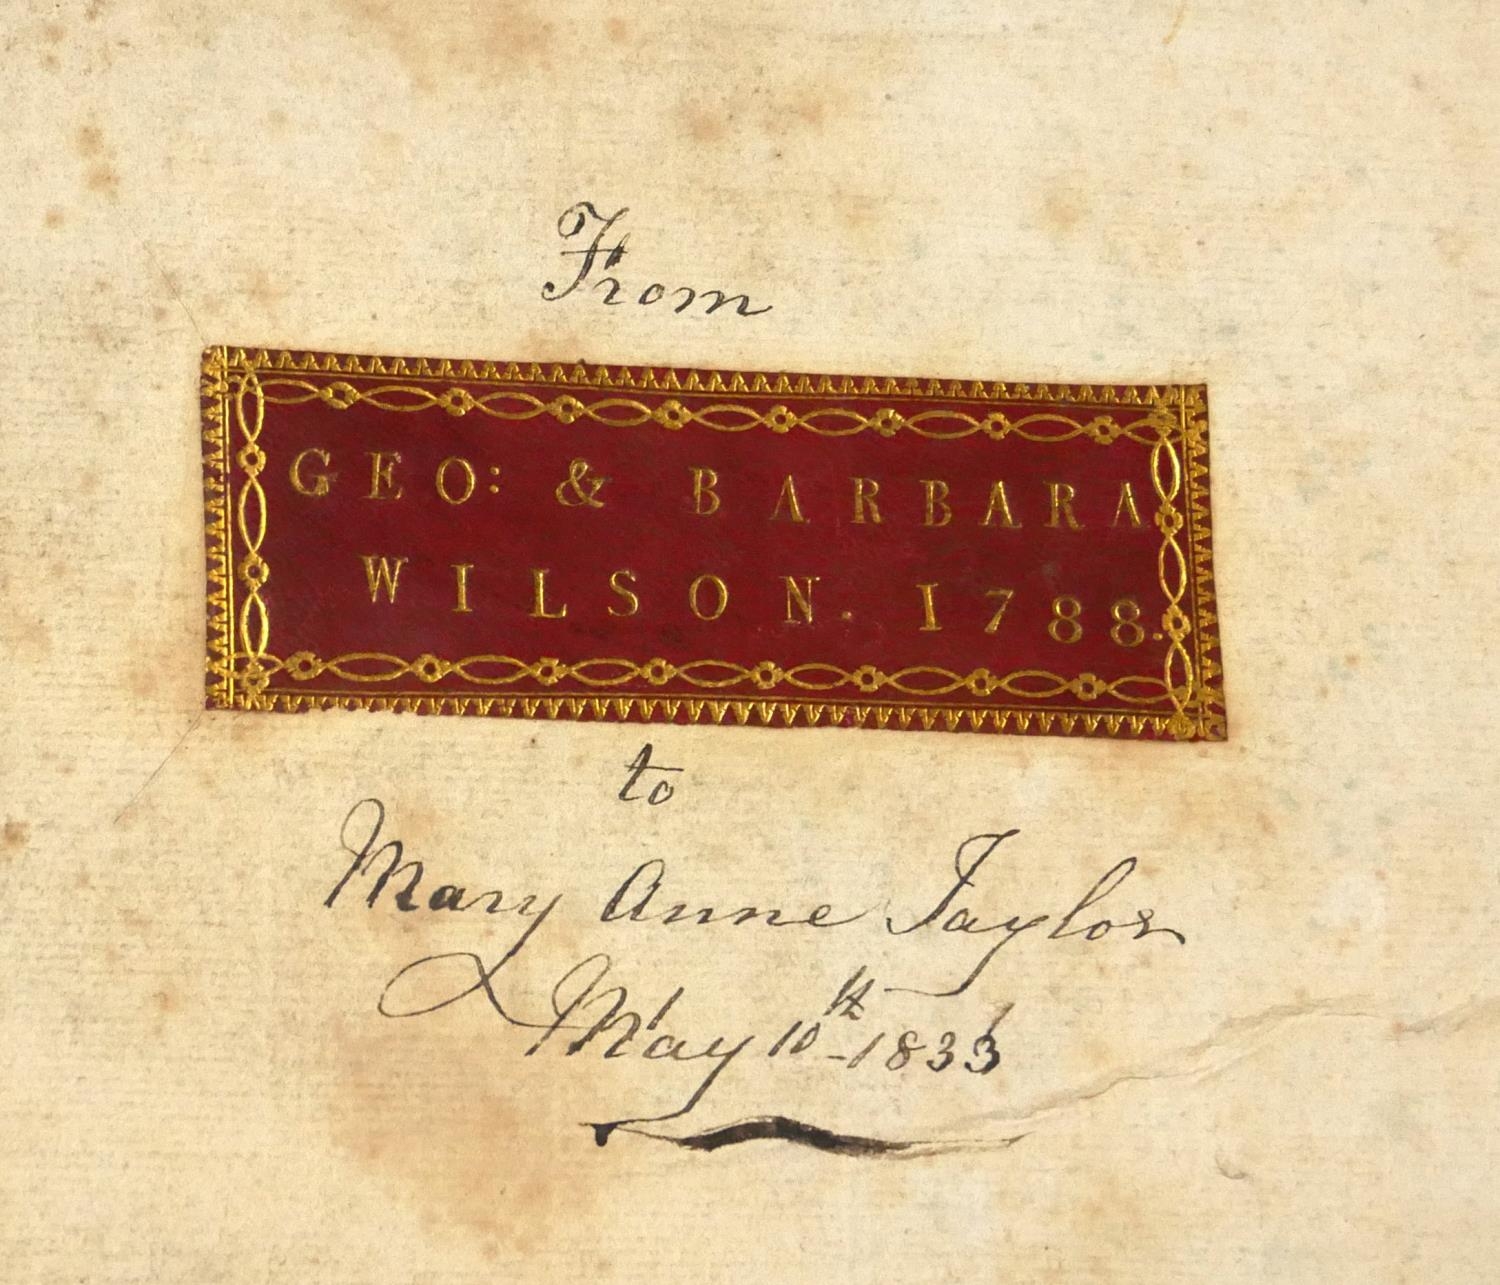 From
GEO: & BARBARA
WILSON. 1788.
to
Mary Anne Taylor
May 10th - 1833